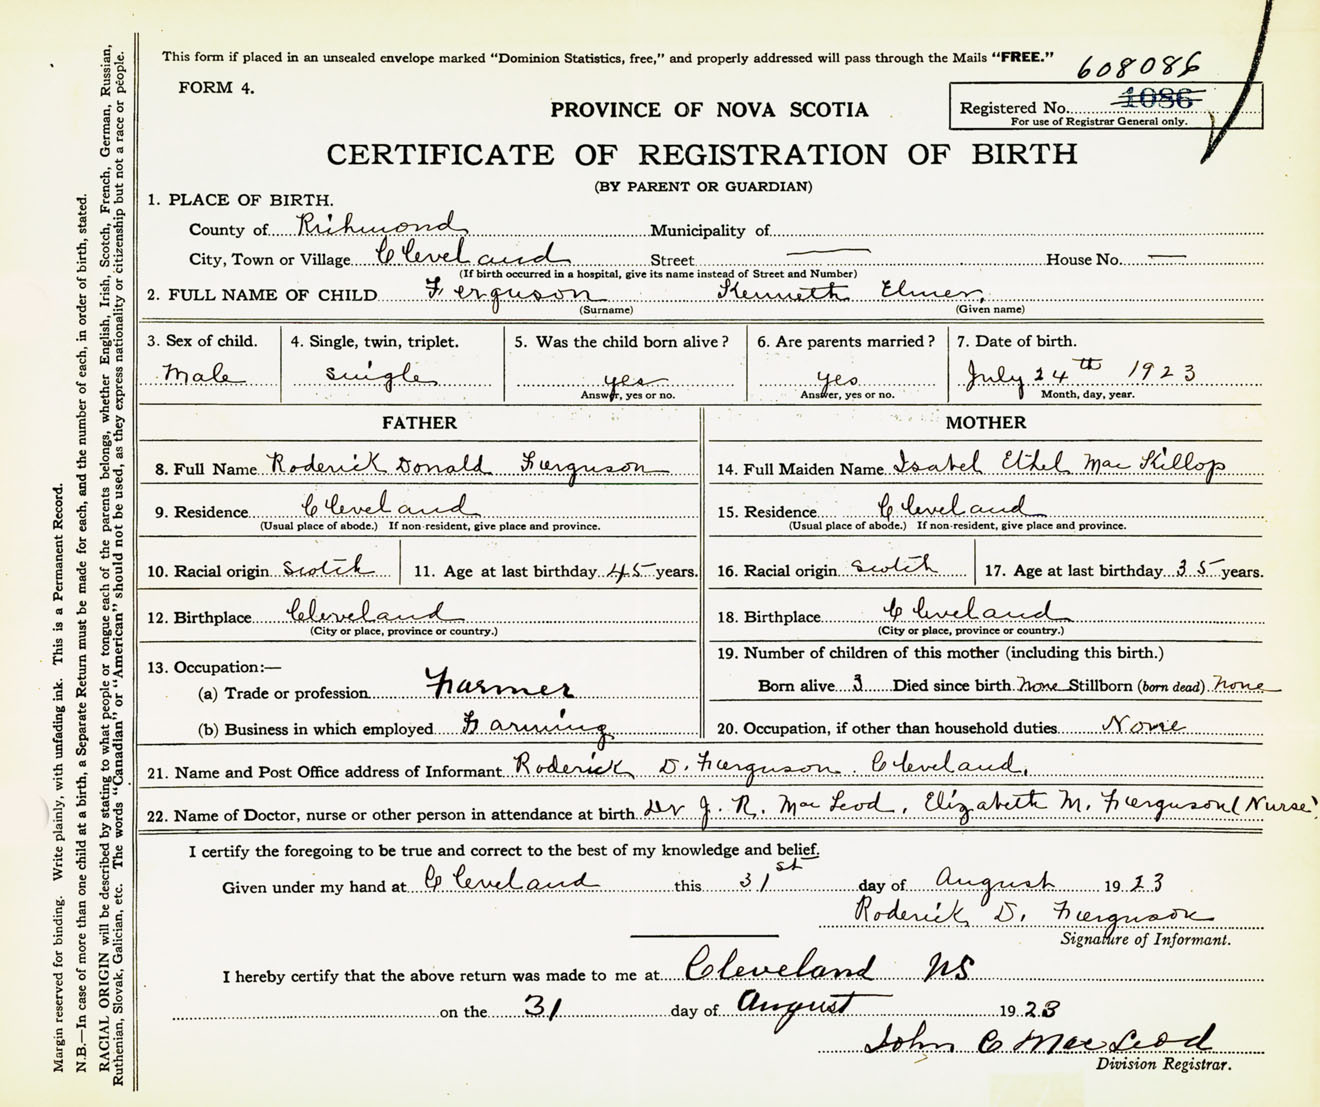 This form if placed in an unsealed envelope marked "Dominion Statistics, free," and properly addressed will pass through the Mails "FREE."
608086
FORM 4.
PROVINCE OF NOVA SCOTIA
Registered No. 1086
For use of Registrar General only.
CERTIFICATE OF REGISTRATION OF BIRTH
(BY PARENT OR GUARDIAN)
1. PLACE OF BIRTH.
County of Richmond Municipality of
City, Town or Village Cleveland Street — House No. —
(If birth occurred in a hospital, give its name instead of Street and Number)
2. FULL NAME OF CHILD Ferguson Kenneth Elmer,
(Surname) (Given name)
3. Sex of child. 4. Single, twin, triplet. 5. Was the child born alive? 6. Are parents married? 7. Date of birth.
Male single yes yes July 24th 1923
Answer, yes or no. Answer, yes or no. Month, day, year.
FATHER MOTHER
8. Full Name Roderick Donald Ferguson 14. Full Maiden Name Isabel Ethel MacKillop
9. Residence Cleveland 15. Residence Cleveland
(Usual place of abode.) If non-resident, give place and province. (Usual place of abode.) If non-resident, give place and province.
10. Racial origin Scotch 11. Age at last birthday 45 years. 16. Racial origin Scotch 17. Age at last birthday 35 years.
12. Birthplace Cleveland 18. Birthplace Cleveland
(City or place, province or country.) (City or place, province or country.)
13. Occupation:— 19. Number of children of this mother (including this birth.)
(a) Trade or profession Farmer Born alive 3 Died since birth None Stillborn (born dead) None
(b) Business in which employed Farming 20. Occupation, if other than household duties None
21. Name and Post Office address of Informant Roderick D. Ferguson. Cleveland.
22. Name of Doctor, nurse or other person in attendance at birth Dr J. R. MacLeod, Elizabeth M. Ferguson (Nurse)
I certify the foregoing to be true and correct to the best of my knowledge and belief.
Given under my hand at Cleveland this 31st day of August 1923
Roderick D. Ferguson
Signature of Informant.
I hereby certify that the above return was made to me at Cleveland NS
on the 31 day of August 1923
John C MacLeod
Division Registrar.
Margin reserved for binding. Write plainly, with unfading ink. This is a Permanent Record.
N.B.—In case of more than one child at a birth, a Separate Return must be made for each, and the number of each, in order of birth, stated.
RACIAL ORIGIN will be described by stating to what people or tongue each of the parents belongs, whether English, Irish, Scotch, French, German, Russian,
Ruthenian, Slovak, Galician, etc. The words "Canadian" or "American" should not be used, as they express nationality or citizenship but not a race or people.